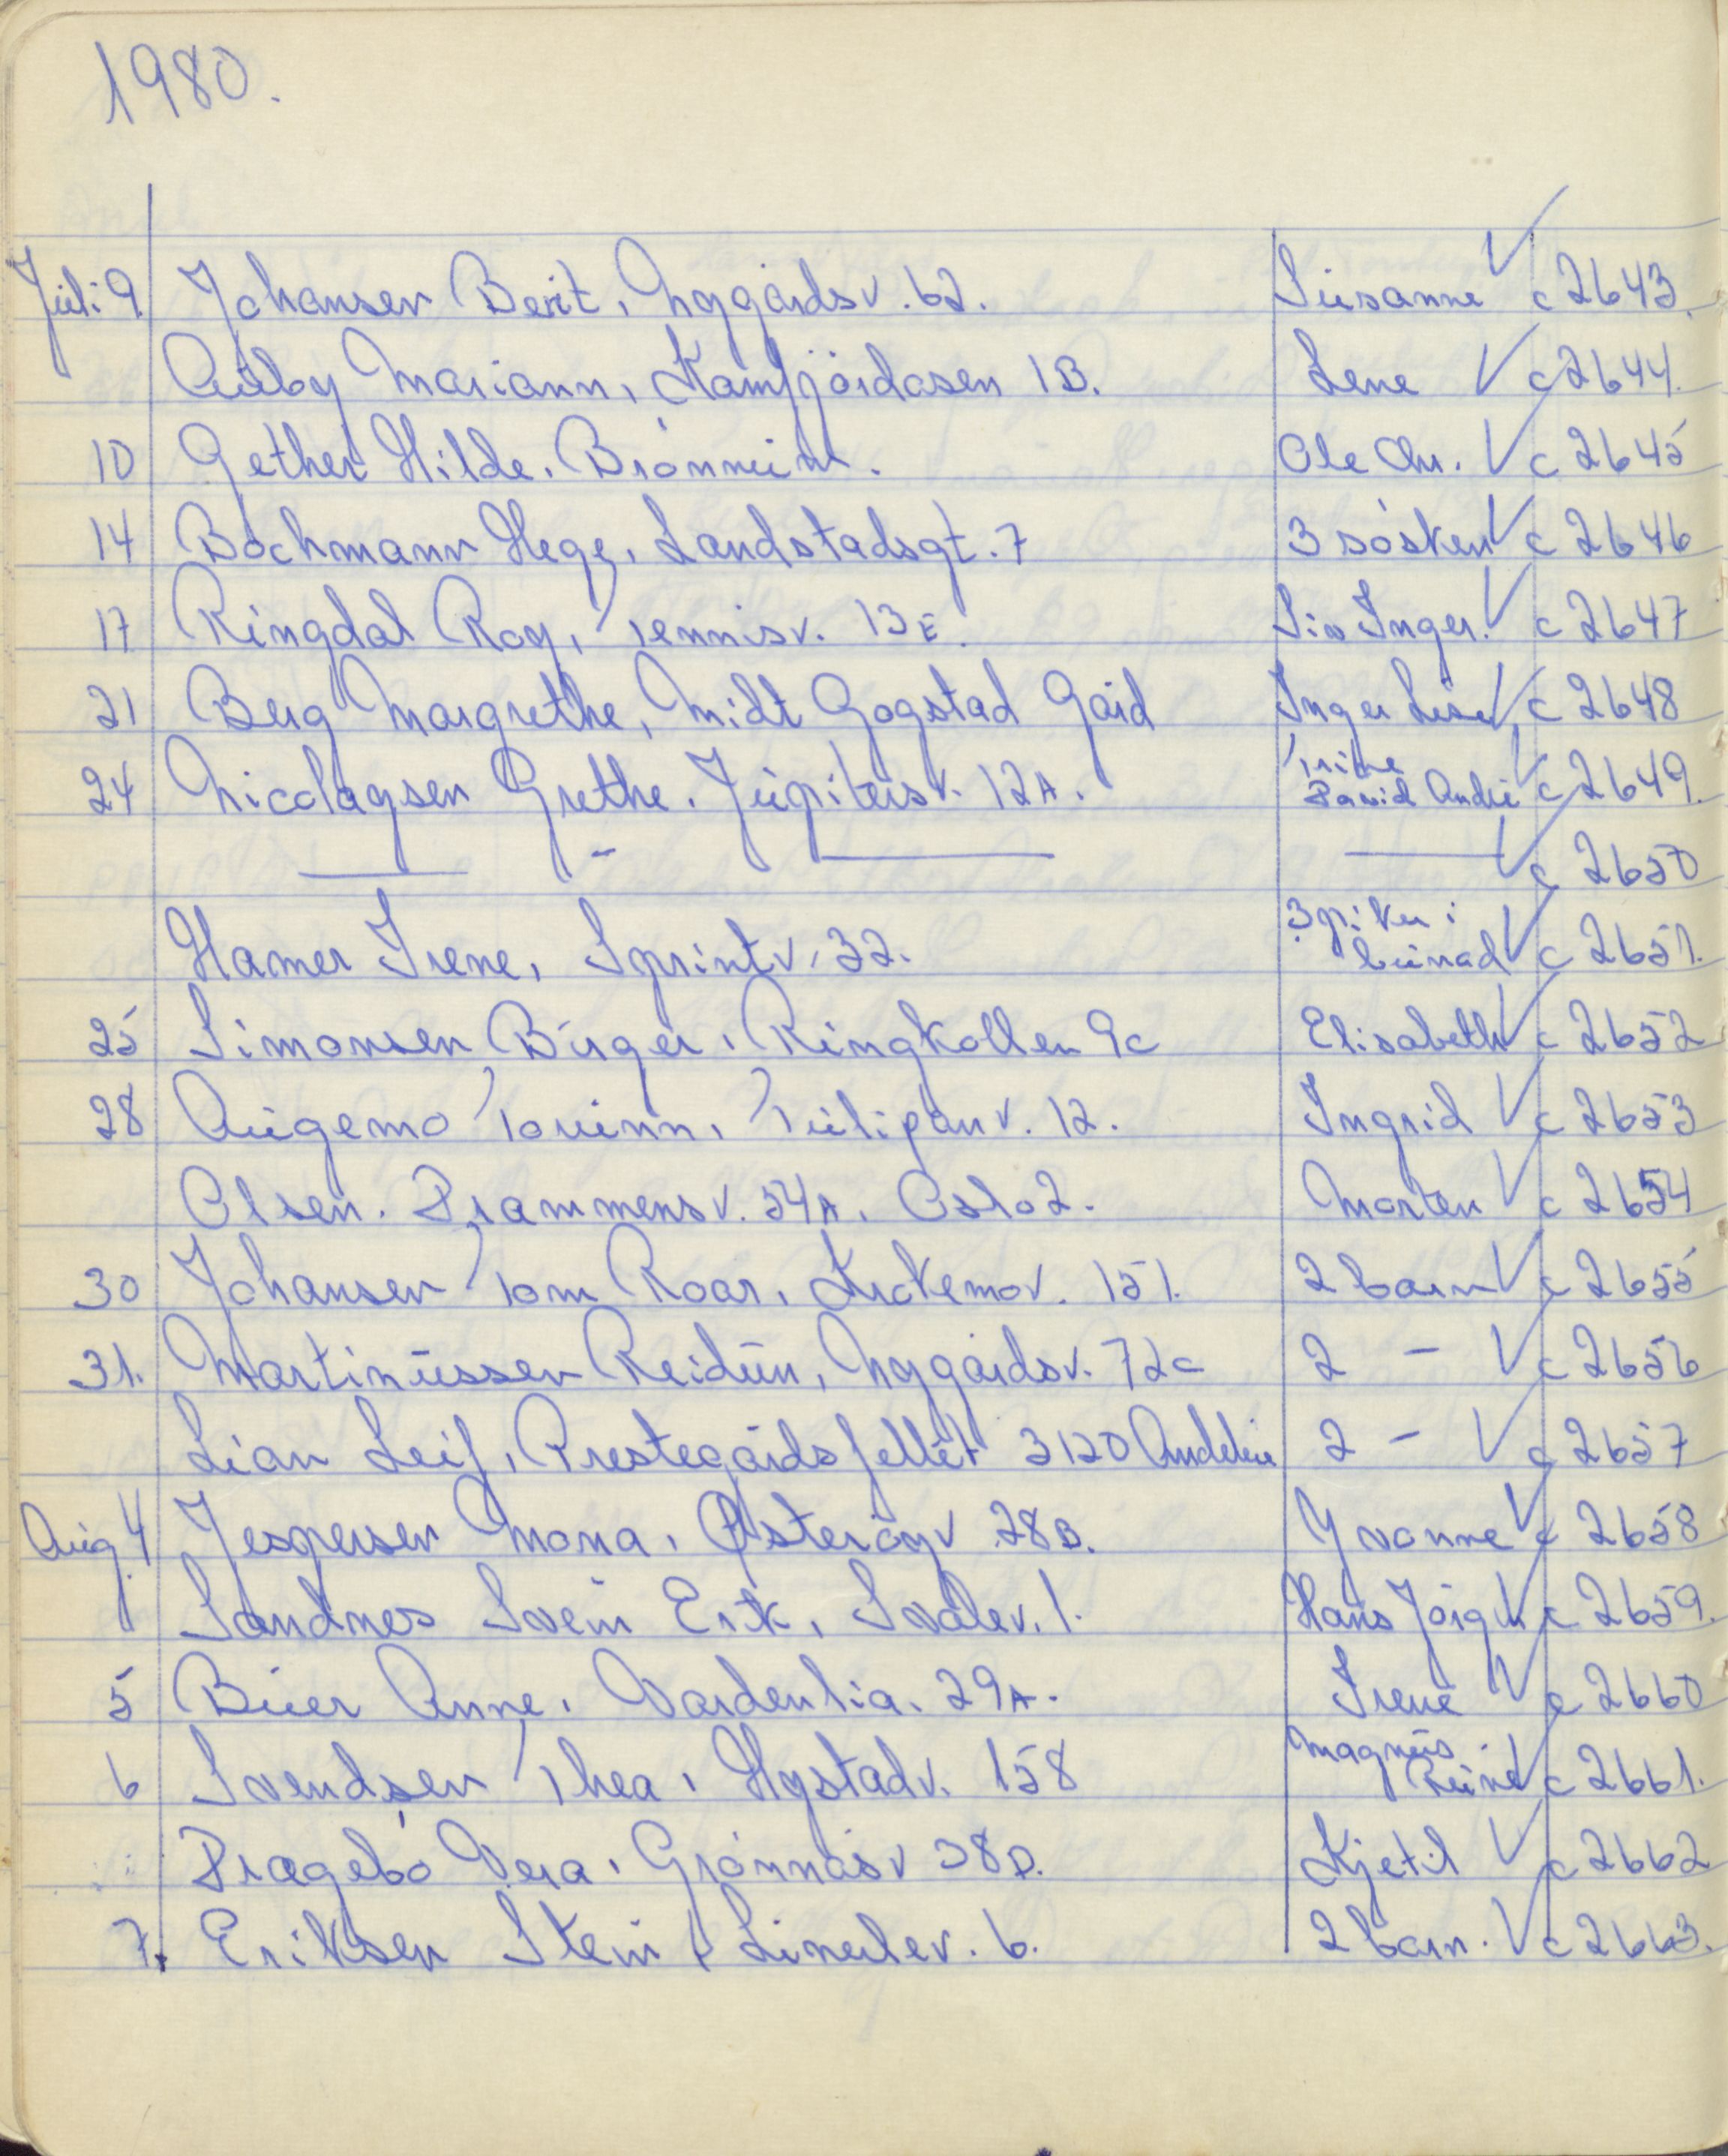 1980.
Juli 9. Johansen Berit, Nygårdsv. 62. Susanne c 2643.
Auby Mariann, Kamfjordåsen 1B. Lene c 2644.
10 Gether Hilde. Ole Chr. c 2645
14 Bøchmann Hege, Landstadsgt. 7 3 søsken c 2646
17 Ringdal Roy, Tennisv. 13E. Siv Inger. c 2647
21 Berg Margrethe, Midt Gogstad Gård Inger Lise c 2648
24 Nicolaysen Grethe. Jupitersv. 12A. Trine David André c 2649.
— - — — c 2650
Hamer Irene, Sprintv. 32. 3 piker i bunad c 2651.
25 Simonsen Birger, Ringkollen 9c Elisabeth c 2652
28 Augemo Torunn, Tulipanv. 12. Ingrid c 2653
Olsen. Drammensv. 54A. Oslo 2. Morten c 2654
30 Johansen Tom Roar, Krokemov. 151. 2 barn c 2655
31. Martinussen Reidun, Nygårdsv. 72c 2 - c 2656
Lian Leif, Prestegårdsfellet 3120 Andebu 2 - c 2657
Aug. 4 Jespersen Mona, Østerøyv 28B. Yvonne c 2658
Sandnes Svein Erik, Svalev. 1. Hans Jørgen c 2659.
5 Buer Anne, Vardenlia. 29A. Irene c 2660
6 Svendsen Thea, Hystadv. 158 Magnus Rune c 2661.
Dragebø Vera, Grønnåsv 38D. Kjetil c 2662
7. Eriksen Stein, Linerlev. 6. 2 barn. c 2663.